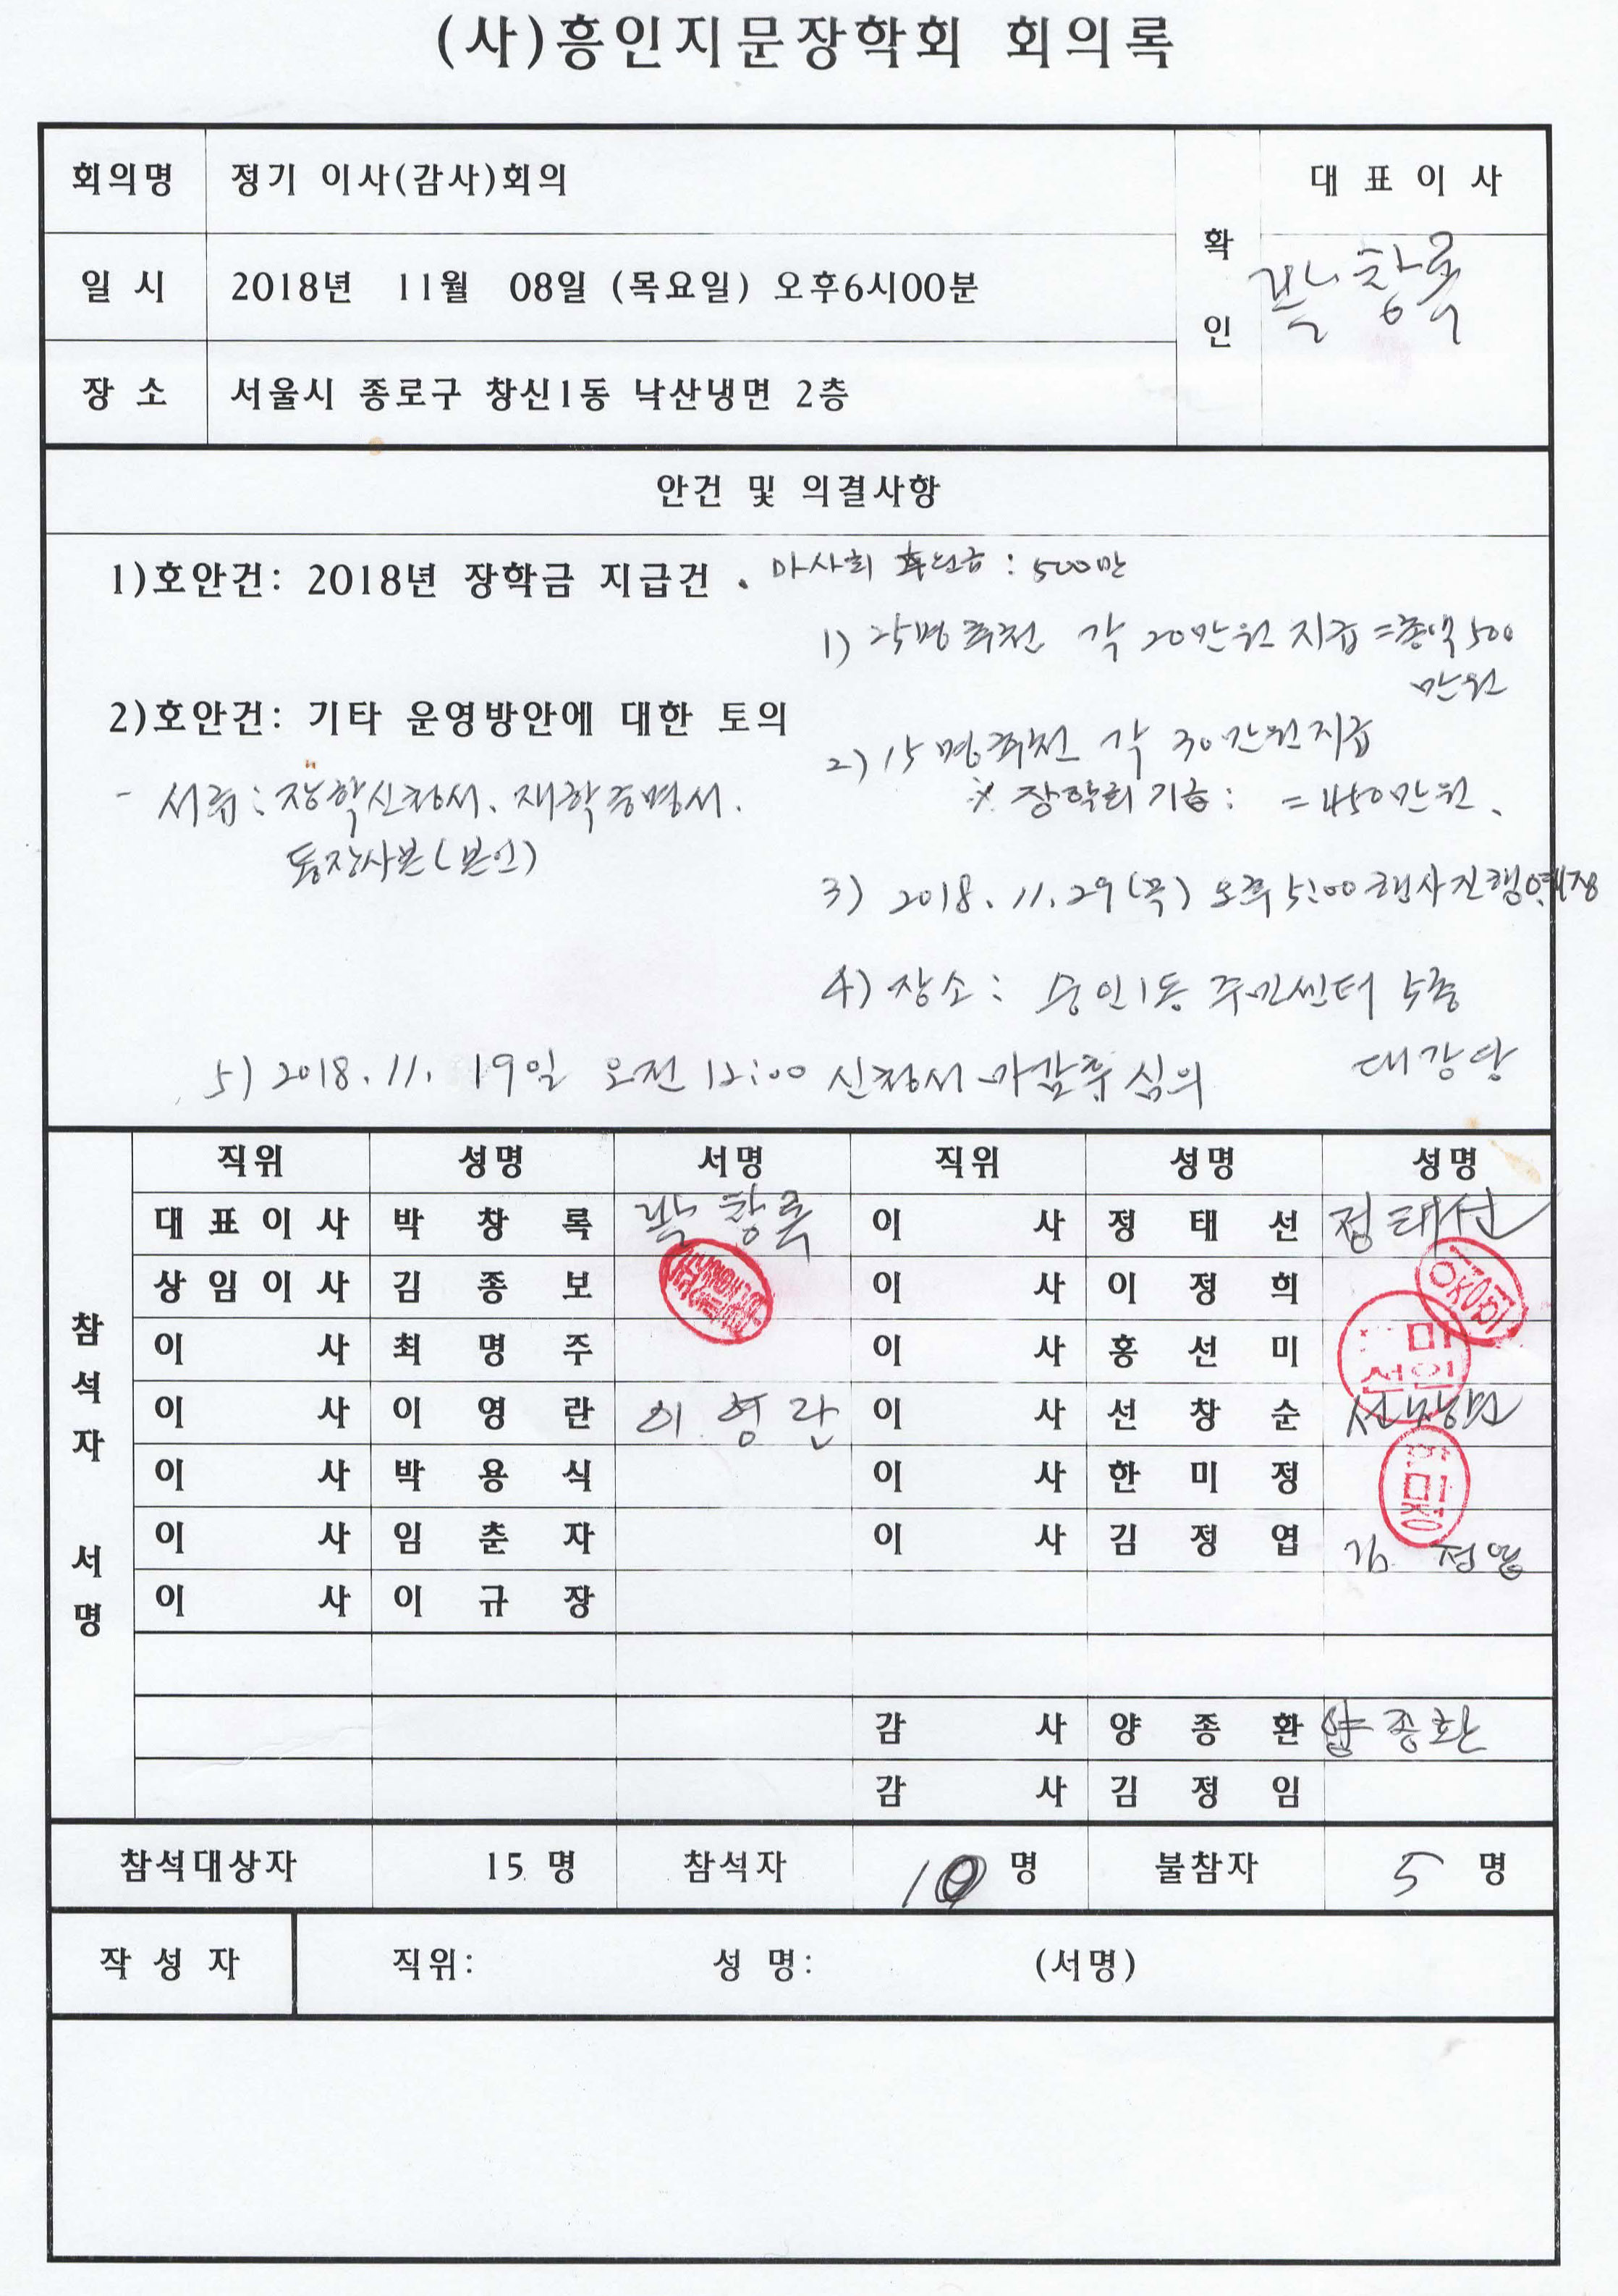 (사)흥인지문장학회 회의록
회의명 정기 이사(감사)회의 확인 대표이사
일 시 2018년 11월 08일 (목요일) 오후6시00분 박창록
장 소 서울시 종로구 창신1동 낙산냉면 2층
안건 및 의결사항
1)호안건: 2018년 장학금 지급건 . 마사회 후원금 : 500만
1) 25명 추천 각 20만원 지급 = 총액 500
만원
2)호안건: 기타 운영방안에 대한 토의
2) 15명 추천 각 30만원 지급
※ 장학회 기금 : = 450만원.
- 서류 : 장학신청서. 재학증명서.
통장사본(본인)
3) 2018. 11. 29(목) 오후 5:00 행사진행예정
4) 장소 : 숭인1동 주민센터 5층
대강당
5) 2018. 11. 19일 오전 12:00 신청서 마감후 심의
참석자 서명
직위 성명 서명 직위 성명 성명
대표이사 박창록 박창록 이사 정태선 정태선
상임이사 김종보 이사 이정희
이사 최명주 이사 홍선미
이사 이영란 이영란 이사 선창순
이사 박용식 이사 한미정 한미정
이사 임춘자 이사 김정엽 김정엽
이사 이규장
감사 양종환 양종환
감사 김정임
참석대상자 15 명 참석자 10 명 불참자 5 명
작 성 자 직위: 성 명: (서명)